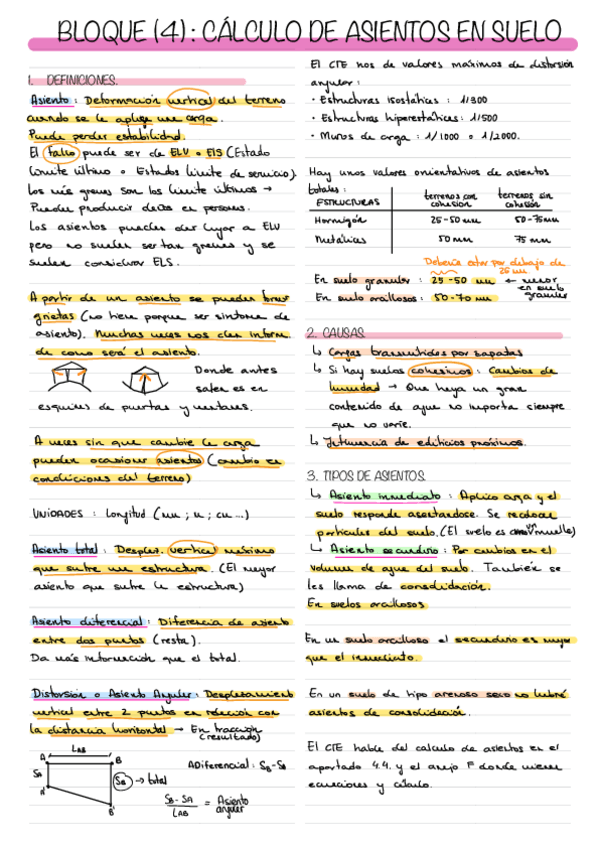 BLOQUE (4): CÁLCULO DE ASIENTOS EN SUELO
1. DEFINICIONES.
Asiento: Deformación vertical del terreno
cuando se le aplica una carga.
Puede perder estabilidad.
El fallo puede ser de ELU o ELS (Estado
límite último o Estados límite de servicio).
Los más graves son los límite últimos →
Pueden producir daños en personas.
Los asientos pueden dar lugar a ELU
pero no suelen ser tan graves y se
suelen considerar ELS.
A partir de un asiento se pueden formar
grietas (no tiene porque ser síntoma de
asiento). Muchas veces nos dan inform.
de como será el asiento.
Donde antes
salen es en
esquinas de puertas y ventanas.
A veces sin que cambie la carga
pueden ocasionar asientos (cambio en
condiciones del terreno)
UNIDADES: Longitud (mm; m; cm...)
Asiento total: Desplaz. vertical máximo
que sufre una estructura. (El mayor
asiento que sufre la estructura)
Asiento diferencial: Diferencia de asiento
entre dos puntos (resta).
Da más información que el total.
Distorsión o Asiento Angular: Desplazamiento
vertical entre 2 puntos en relación con
la distancia horizontal → En fracción
(resultado)
LAB
A B
SA SB → total
A' B'
ADiferencial: SB-SA
SB-SA / LAB = Asiento angular
El CTE nos da valores máximos de distorsión
angular:
· Estructuras isostáticas: 1/300
· Estructuras hiperestáticas: 1/500
· Muros de carga: 1/1000 o 1/2000.
Hay unos valores orientativos de asientos
totales:
ESTRUCTURAS terrenos con cohesión terrenos sin cohesión
Hormigón 25-50 mm 50-75mm
Metálicas 50 mm 75 mm
Debería estar por debajo de
25 mm
En suelo granular: 25-50 mm ← menor en suelo granular
En suelo arcillosos: 50-70 mm
2. CAUSAS.
↳ Cargas transmitidas por zapatas
↳ Si hay suelos cohesivos: Cambios de
humedad → Que haya un gran
contenido de agua no importa siempre
que no varíe.
↳ Influencia de edificios próximos.
3. TIPOS DE ASIENTOS.
↳ Asiento inmediato: Aplico carga y el
suelo responde asentandose. Se recolocan
partículas del suelo. (El suelo es un muelle)
↳ Asiento secundario: Por cambios en el
volumen de agua del suelo. También se
les llama de consolidación.
En suelos arcillosos
En un suelo arcilloso el secundario es mayor
que el inmediato.
En un suelo de tipo arenoso seco no habrá
asientos de consolidación.
El CTE habla del calculo de asientos en el
apartado 4.4. y el anejo F donde vienen
ecuaciones y cálculo.